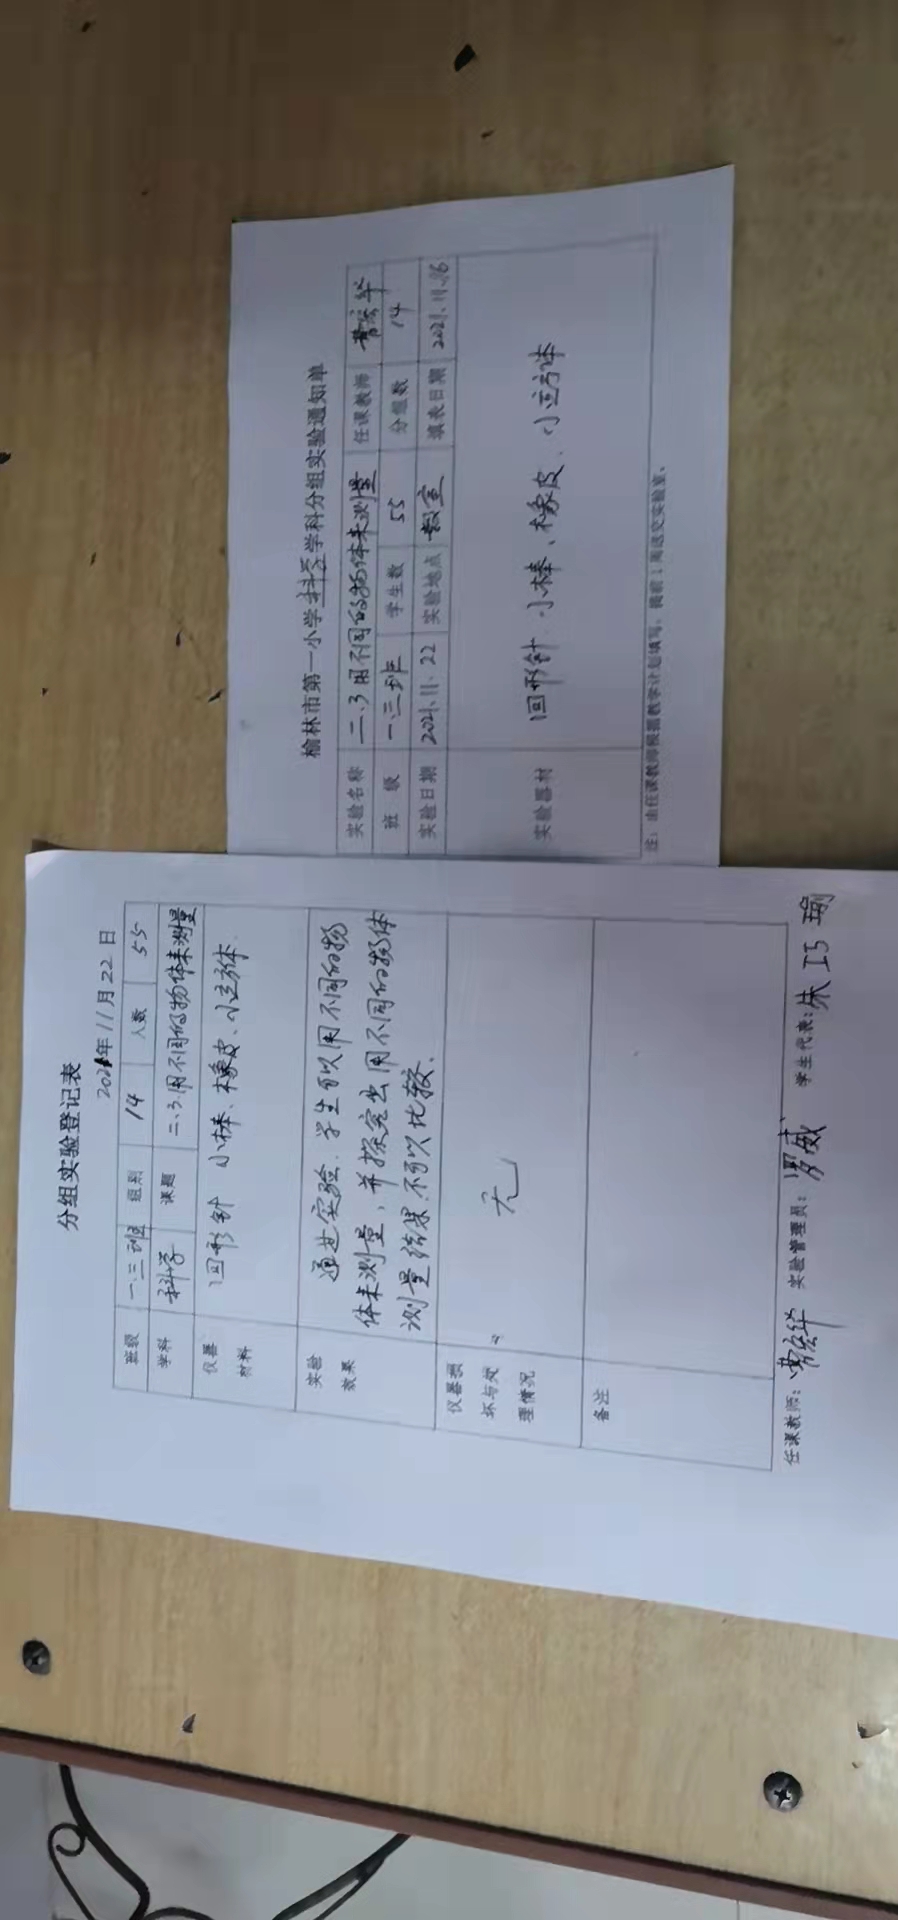 分组实验登记表
2021年11月22日
班级 一.三班 组别 14 人数 55
学科 科学 课题 二、3.用不同的物体来测量
仪器材料 回形针 小棒、橡皮、小立方体.
实验效果 通过实验.学生可以用不同的物
体来测量,并探究出用不同的物体
测量结果不可以比较.
仪器损坏与处理情况 无
备注
任课教师: 实验管理员: 罗威 学生代表: 朱巧瑜
榆林市第一小学科学学科分组实验通知单
实验名称 二、3用不同的物体来测量 任课教师
班 级 一.三班 学生数 55 分组数 14
实验日期 2021.11.22 实验地点 教室 填表日期 2021.11.16
实验器材 回形针.小棒、橡皮.小立方体
注:由任课教师根据教学计划填写,提前1周送交实验室。